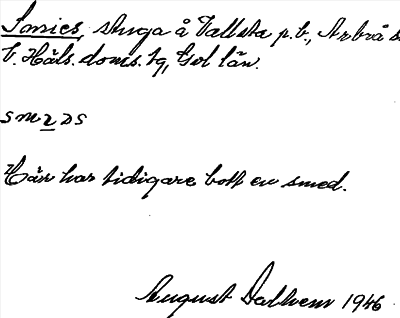 Smies, stuga å Vallsta p.b., Arbrå s.
V. Häls. doms. tg, Gvl län.
smɩDs
Här har tidigare bott en smed.
August Dalhem 1946